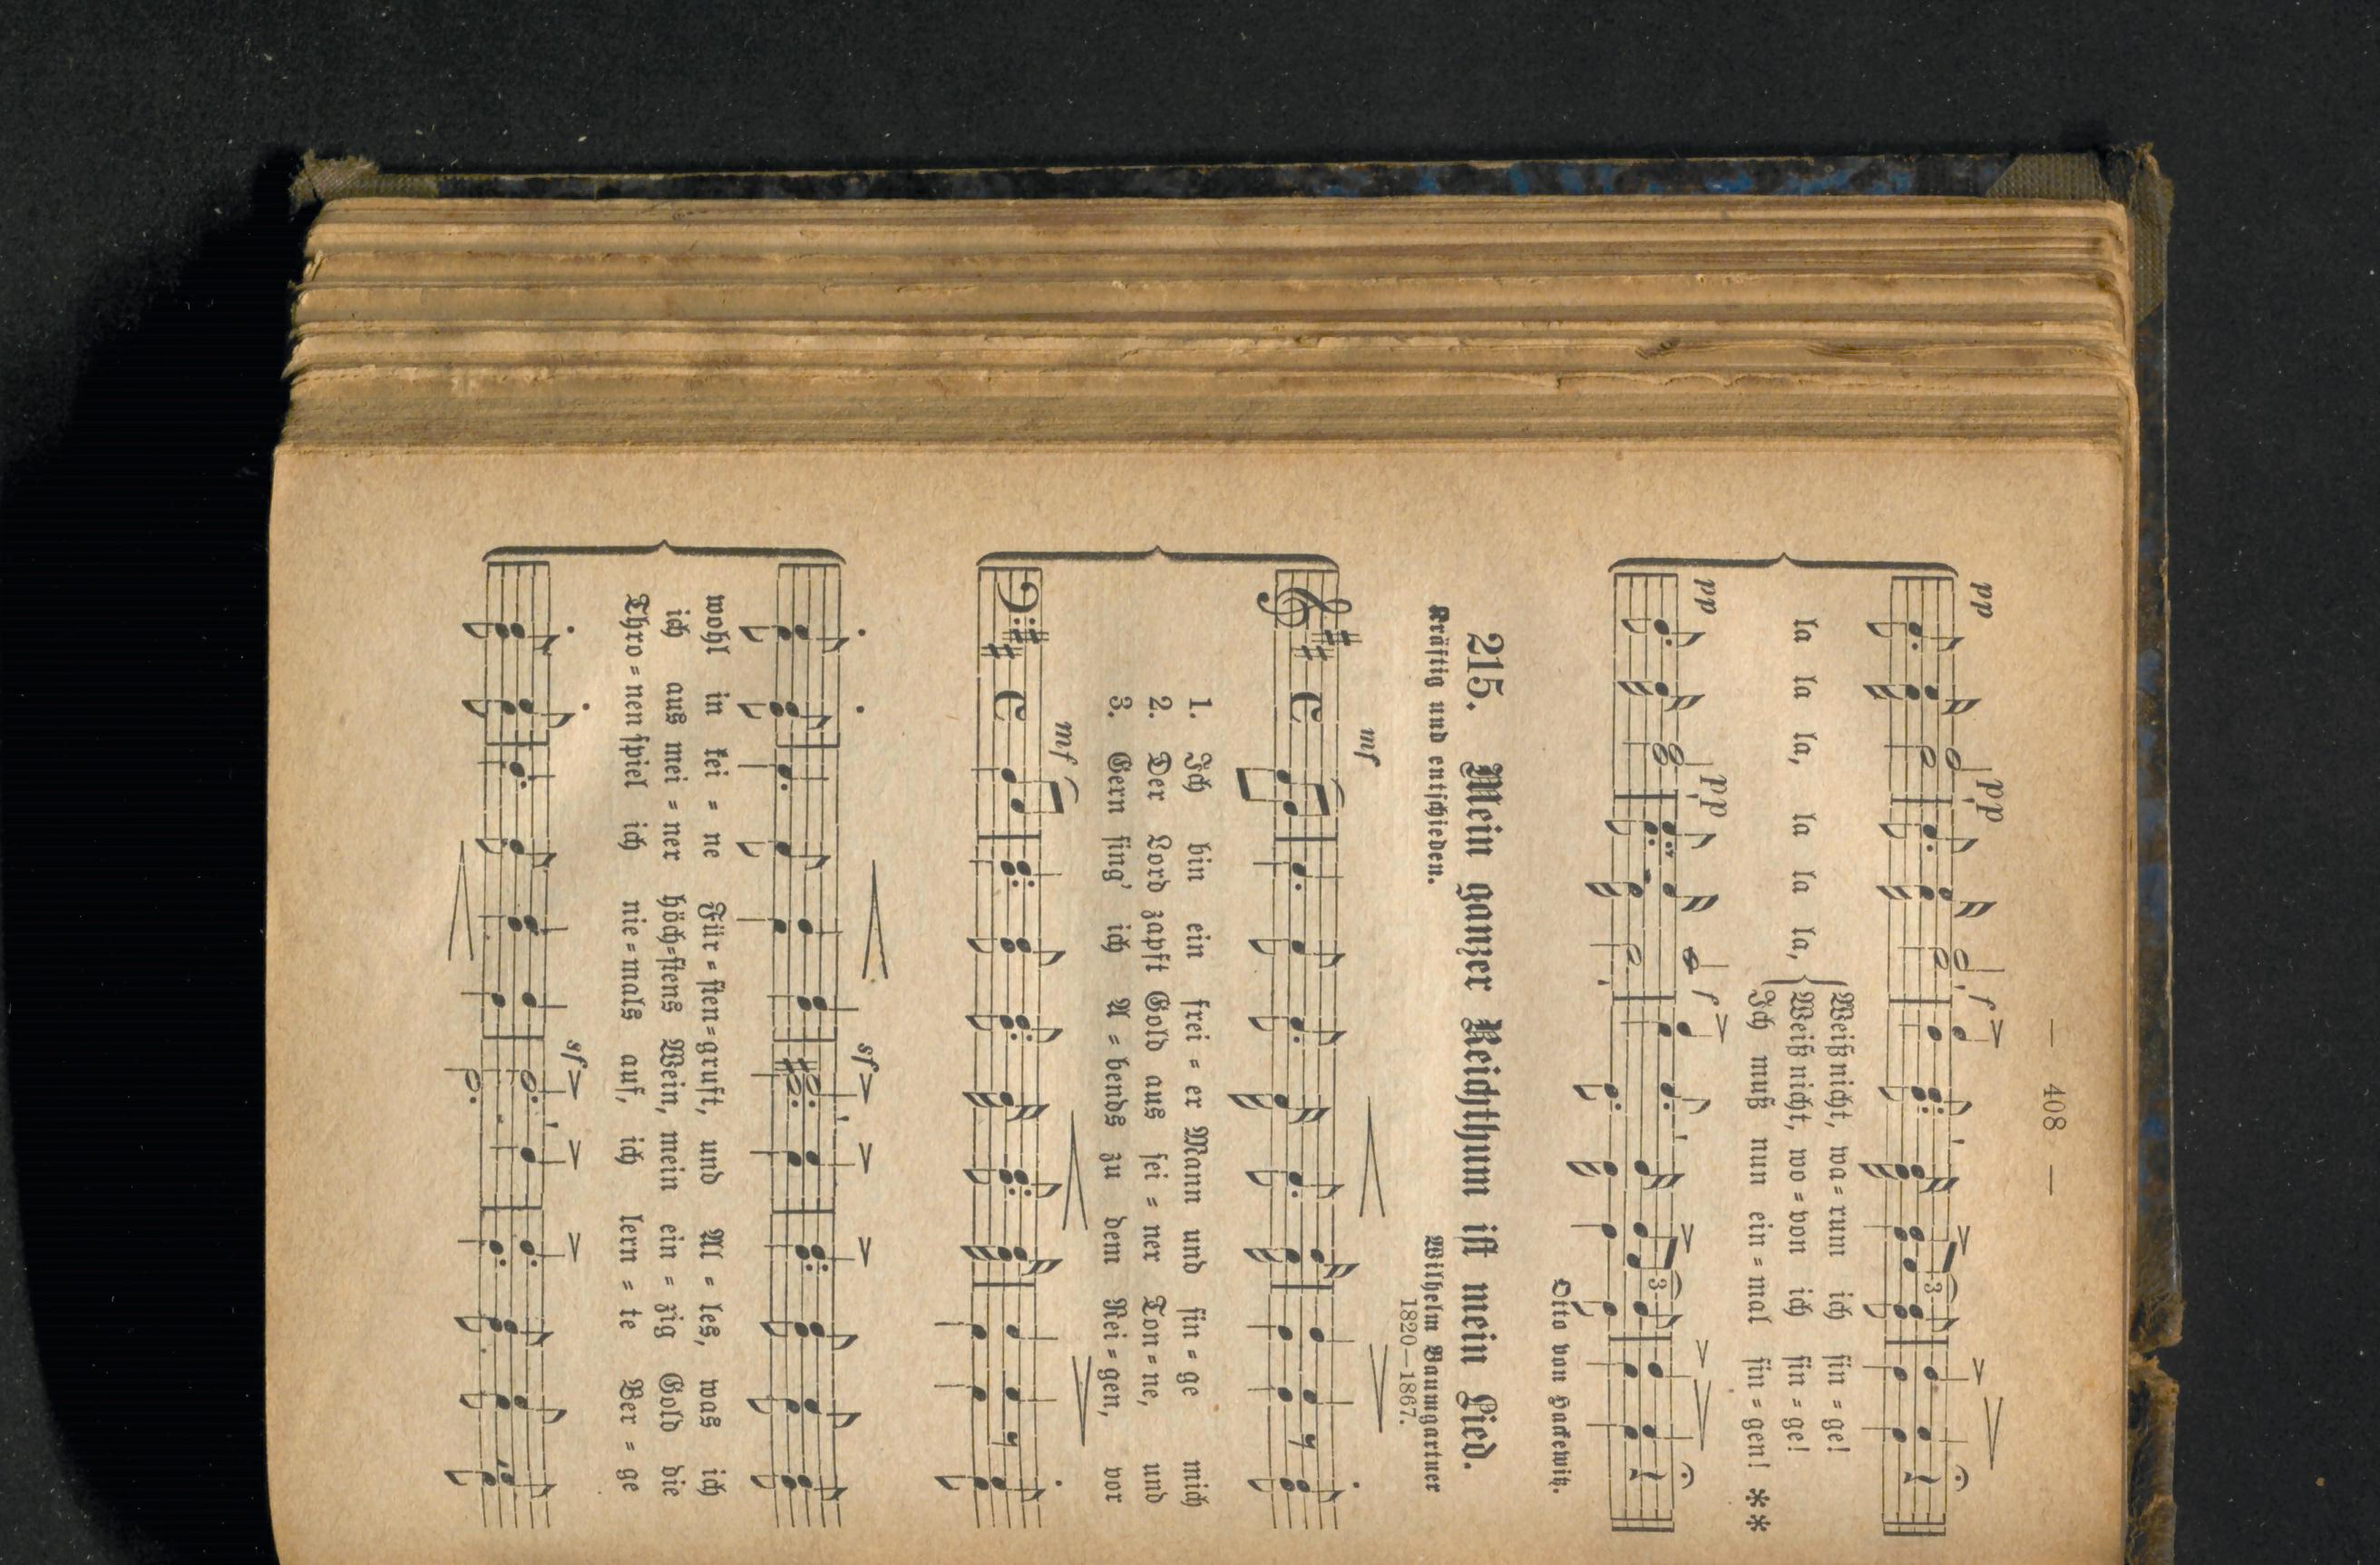 — 408 —
pp pp f
la la la, la la la, Weiß nicht, wa=rum ich sin=ge!
Weiß nicht, wo=von ich sin=ge!
Ich muß nun ein=mal sin=gen! **
pp pp f
Otto von Hackewitz.
215. Mein ganzer Reichthum ist mein Lied.
Kräftig und entschieden. Wilhelm Baumgartner
1820—1867.
mf
1. Ich bin ein frei=er Mann und sin=ge mich
2. Der Lord zapft Gold aus sei=ner Ton=ne, und
3. Gern sing' ich A=bends zu dem Rei=gen, vor
mf
sf
wohl in kei=ne Für=sten=gruft, und Al=les, was ich
ich aus mei=ner höch=stens Wein, mein ein=zig Gold die
Thro=nen spiel ich nie=mals auf, ich lern=te Ber=ge
sf